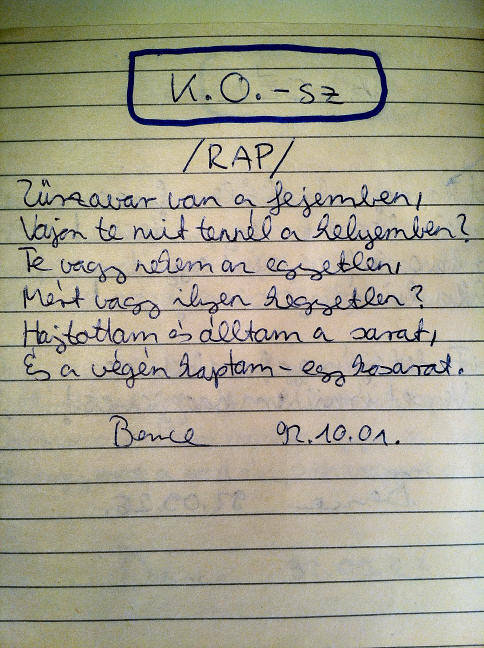 K.O.-sz
/RAP/
Zűrzavar van a fejemben,
Vajon te mit tennél a helyemben?
Te vagy nekem az egyetlen,
Mért vagy ilyen kegyetlen?
Hajtottam és álltam a sarat,
És a végén kaptam - egy kosarat.
Bence 92.10.01.